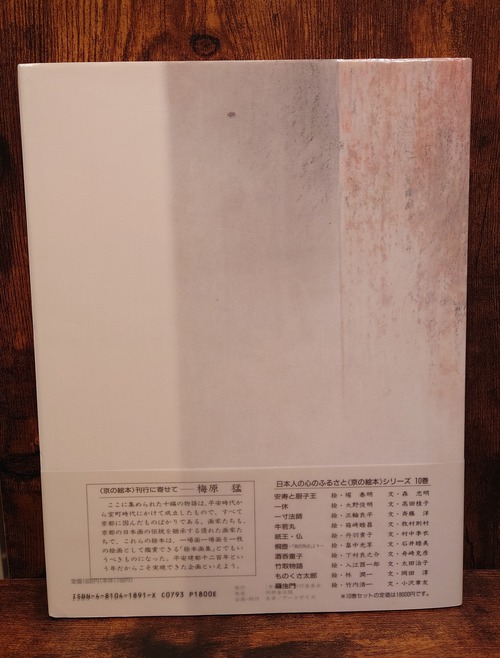 〈京の絵本〉刊行に寄せて――梅原 猛
ここに集められた十編の物語は、平安時代か
ら室町時代にかけて成立したもので、すべて
京都に因んだものばかりである。画家たちも、
京都の日本画の伝統を継承する優れた画家た
ちで、これらの絵本は、一場面一場面を一枚
の絵画として鑑賞できる「絵本画集」とでもい
うべきものになった。平安建都千二百年とい
う年だからこそ実現できた企画といえよう。
ISBN4-8106-1891-X C0793 P1800E
日本人の心のふるさと〈京の絵本〉シリーズ 10巻
安寿と厨子王 絵・堀 泰明 文・森 忠明
一休 絵・大野俊明 文・高田桂子
一寸法師 絵・三輪良平 文・斉藤 洋
牛若丸 絵・箱崎睦昌 文・牧村則村
祇王・仏 絵・丹羽貴子 文・村中李衣
桐壺 絵・畠中光享 文・石井睦美
酒呑童子 絵・下村良之介 文・舟崎克彦
竹取物語 絵・入江酉一郎 文・太田治子
ものくさ太郎 絵・林 潤一 文・岡田 淳
羅生門 絵・竹内浩一 文・小沢章友
※10巻セットの定価は18000円です。